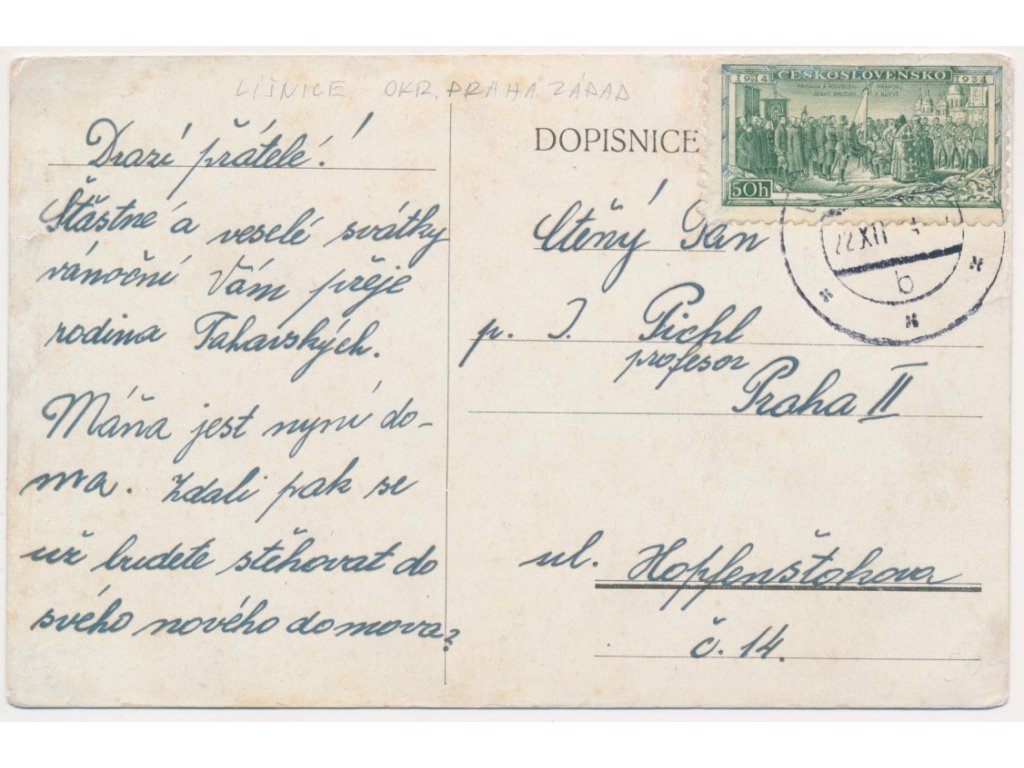 LIŠNICE OKR. PRAHA ZÁPAD
Drazí přátelé!
Šťastné a veselé svátky
vánoční Vám přeje
rodina Taharských.
Máňa jest nyní do-
ma. Zdali pak se
už budete stěhovat do
svého nového domova?
DOPISNICE
1914 ČESKOSLOVENSKO 1934
PŘÍSAHA A POSVĚCENÍ PRAPORU
ČESKÉ DRUŽINY V KIJEVĚ
50h
22 XII
b
Ctěný Pan
p. J. Pichl
profesor
Praha II
ul. Hopfenštokova
č. 14.